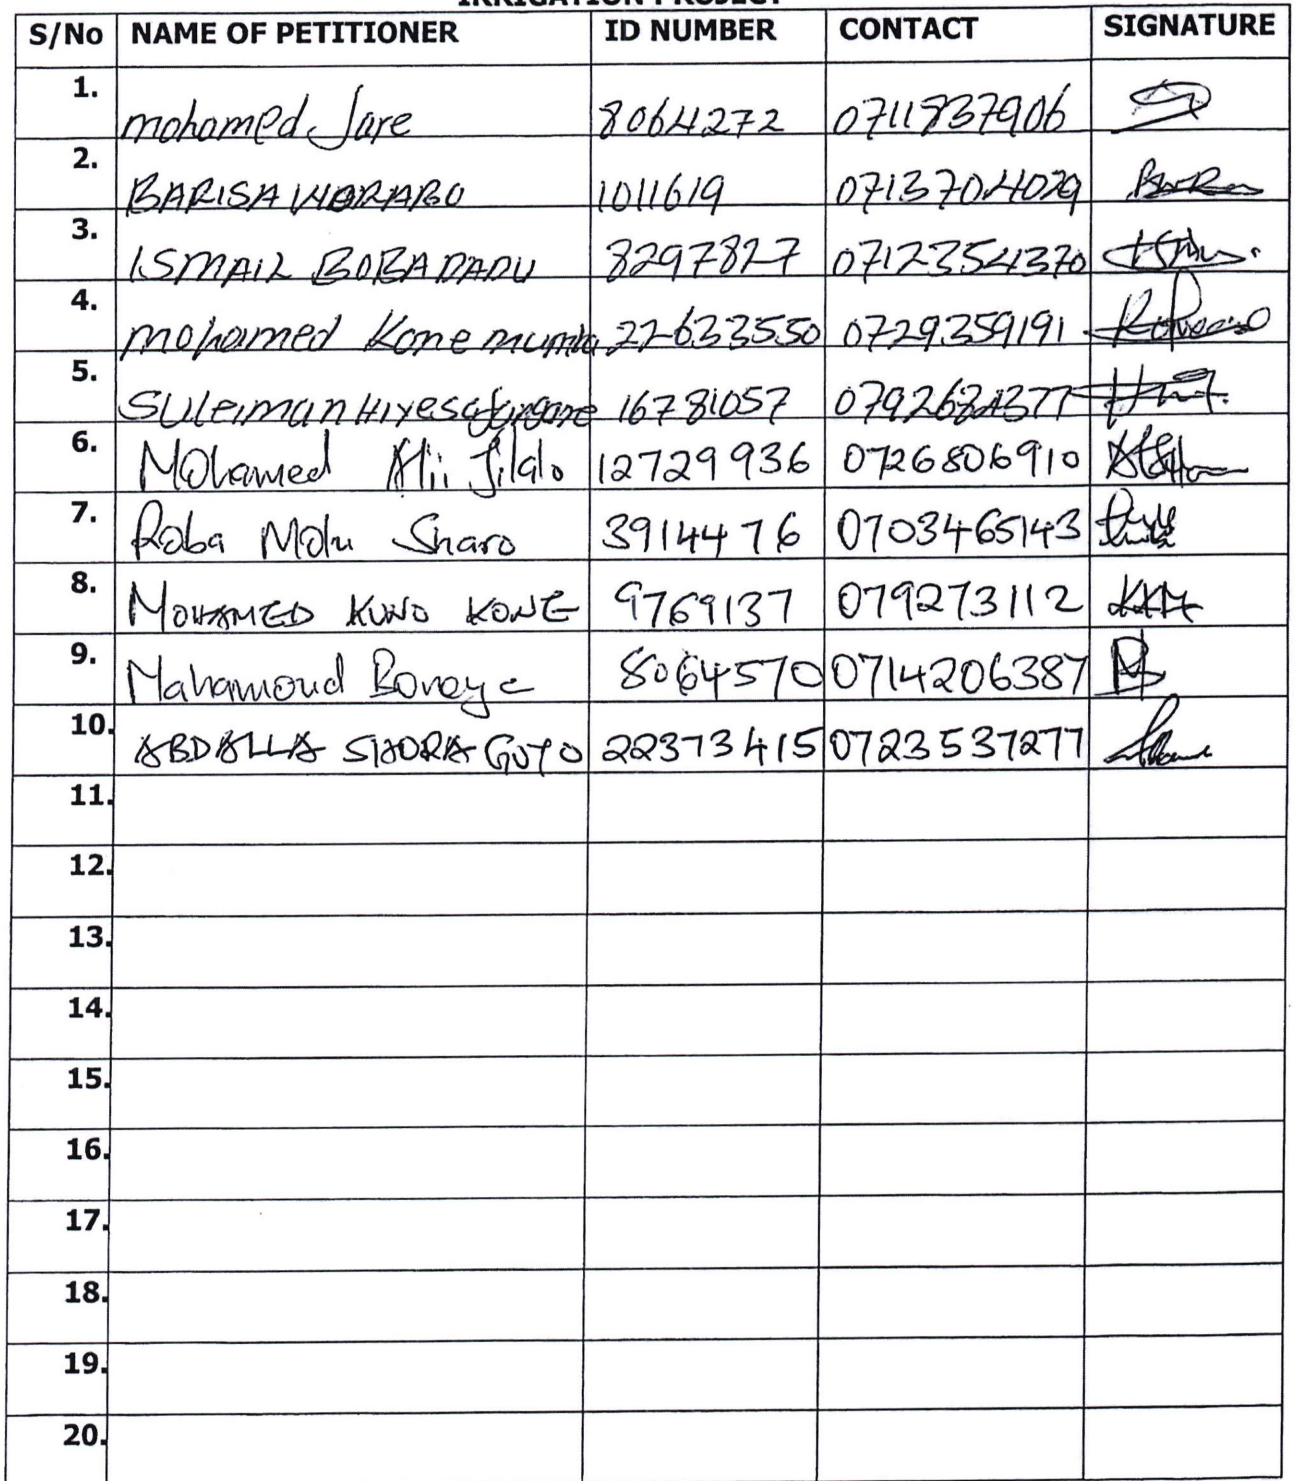 IRRIGATION PROJECT
S/No NAME OF PETITIONER ID NUMBER CONTACT SIGNATURE
1. mohamed Jare 8064272 0711837906
2. BARISA WORABO 1011619 0713704029
3. ISMAIL BOBA DADU 8297827 0712354370
4. mohamed Kone 22633550 0729359191
5. SULeiman Hiyesa 16781057
6. Mohamed Alii Jilalo 12729936 0726806910
7. Roba Molu Sharo 39144 76 0703465143
8. MOHAMED KUNO KONE 9769137 079273112
9. Mahamoud Bonaya 8064570 0714206387
10. ABDALLA SHORA GUYO 22373415 0723537277
11.
12.
13.
14.
15.
16.
17.
18.
19.
20.